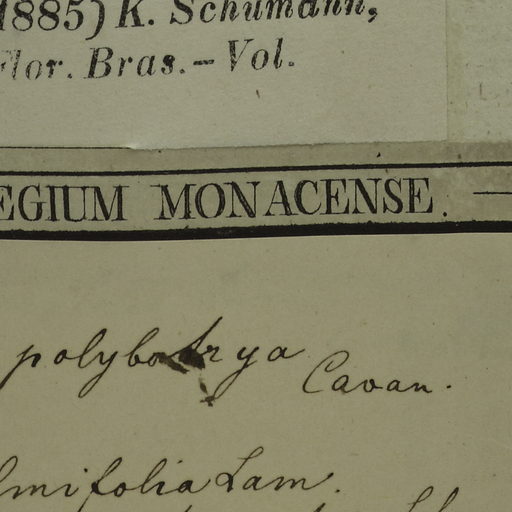 1885) K. Schumann,
Flor. Bras.– Vol.
EGIUM MONACENSE.
polybotrya Cavan.
lmifolia Lam.